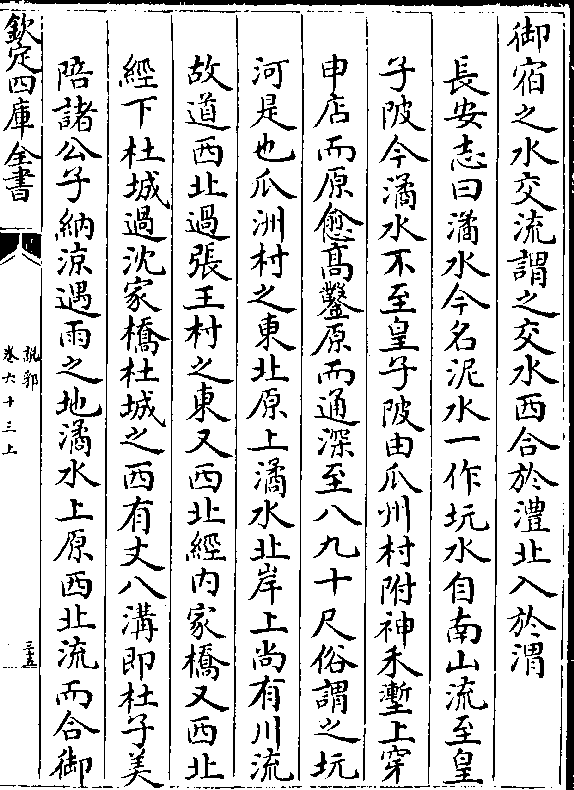 御宿之水交流謂之交水西合於澧北入於渭
長安志曰潏水今名泥水一作坑水自南山流至皇
子陂今潏水不至皇子陂由瓜州村附神禾塹上穿
申店而原愈高鑿原而通深至八九十尺俗謂之坑
河是也瓜洲村之東北原上潏水北岸上尚有川流
故道西北過張王村之東又西北經内家橋又西北
經下杜城過沈家橋杜城之西有丈八溝即杜子美
陪諸公子納涼遇雨之地潏水上原西北流而合御
欽定四庫全書
說郛
卷六十三上
三十五